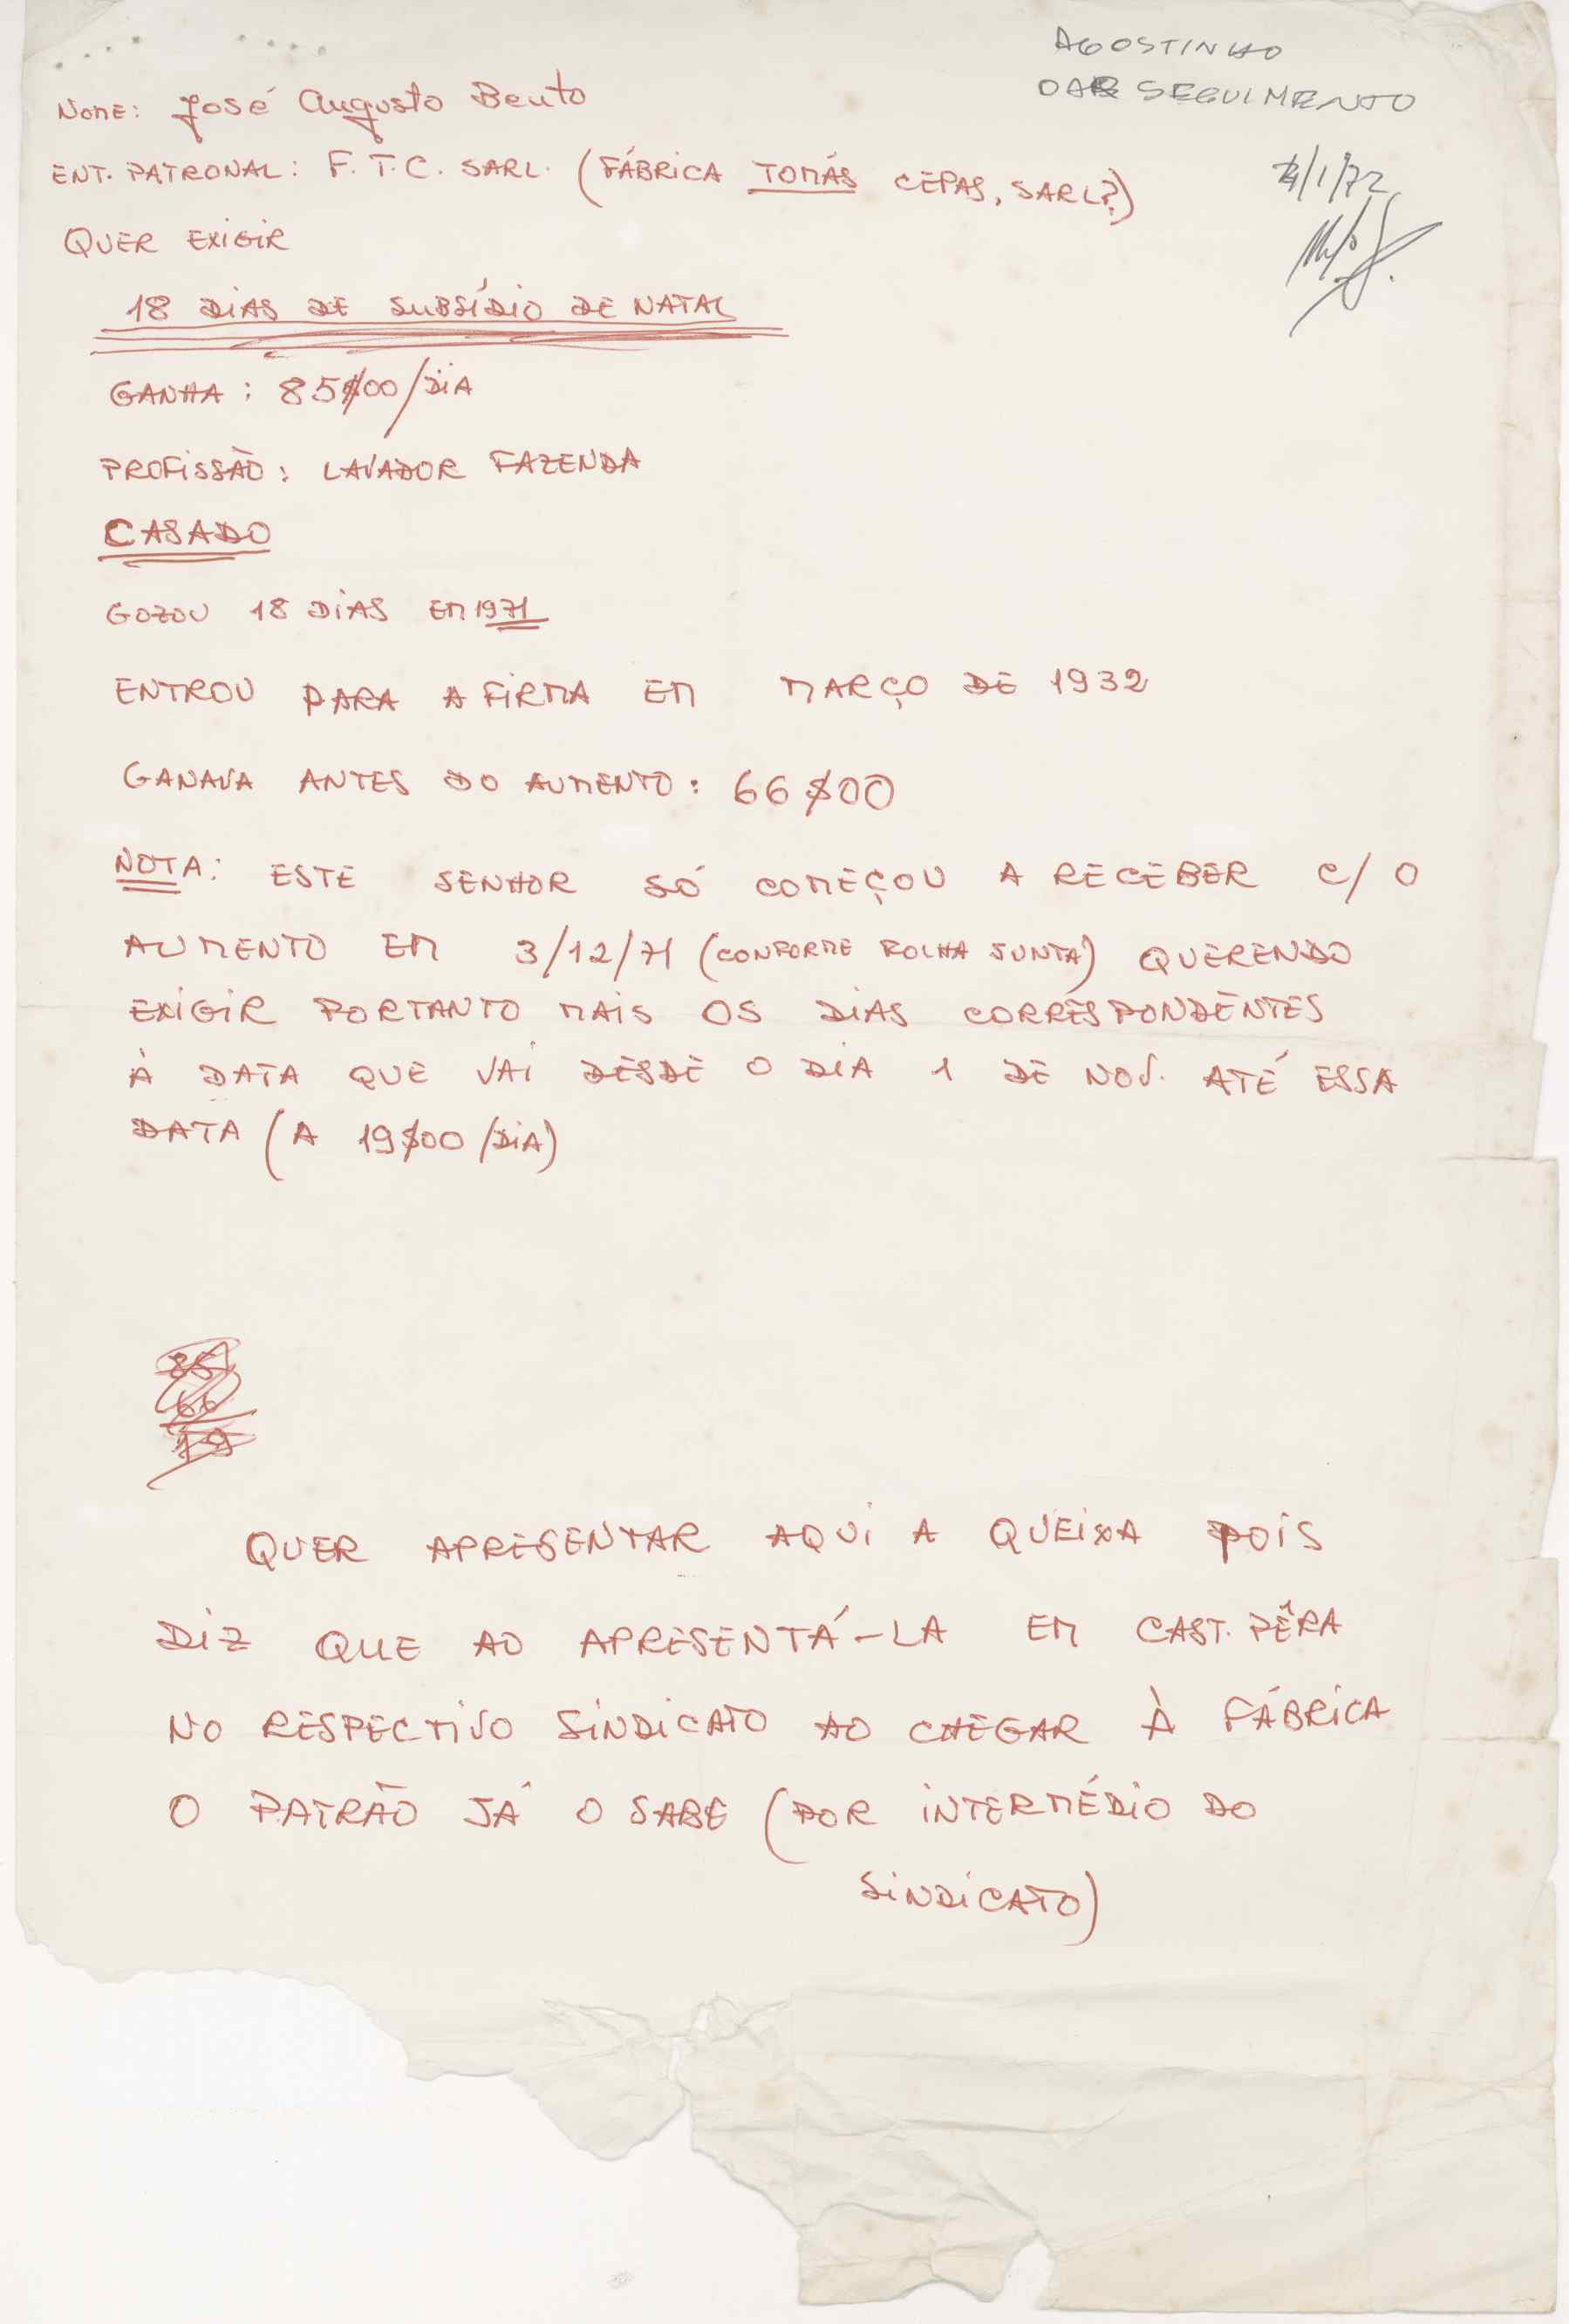 AGOSTINHO
DAR SEGUIMENTO
NOME: José Augusto Bento
ENT. PATRONAL: F. T. C. SARL. (FÁBRICA TOMÁS CEPAS, SARL?)
/1/72
QUER EXIGIR
18 DIAS DE SUBSÍDIO DE NATAL
GANHA: 85$00/DIA
PROFISSÃO: LAVADOR FAZENDA
CASADO
GOZOU 18 DIAS EM 1971
ENTROU PARA A FIRMA EM MARÇO DE 1932
GANAVA ANTES DO AUMENTO: 66$00
NOTA: ESTE SENHOR SÓ COMEÇOU A RECEBER C/ O
AUMENTO EM 3/12/71 (CONFORME FOLHA JUNTA) QUERENDO
EXIGIR PORTANTO MAIS OS DIAS CORRESPONDENTES
À DATA QUE VAI DESDE O DIA 1 DE NOV. ATÉ ESSA
DATA (A 19$00/DIA)
85
66
19
QUER APRESENTAR AQUI A QUEIXA POIS
DIZ QUE AO APRESENTÁ-LA EM CAST. PÊRA
NO RESPECTIVO SINDICATO AO CHEGAR À FÁBRICA
O PATRÃO JÁ O SABE (POR INTERMÉDIO DO
SINDICATO)